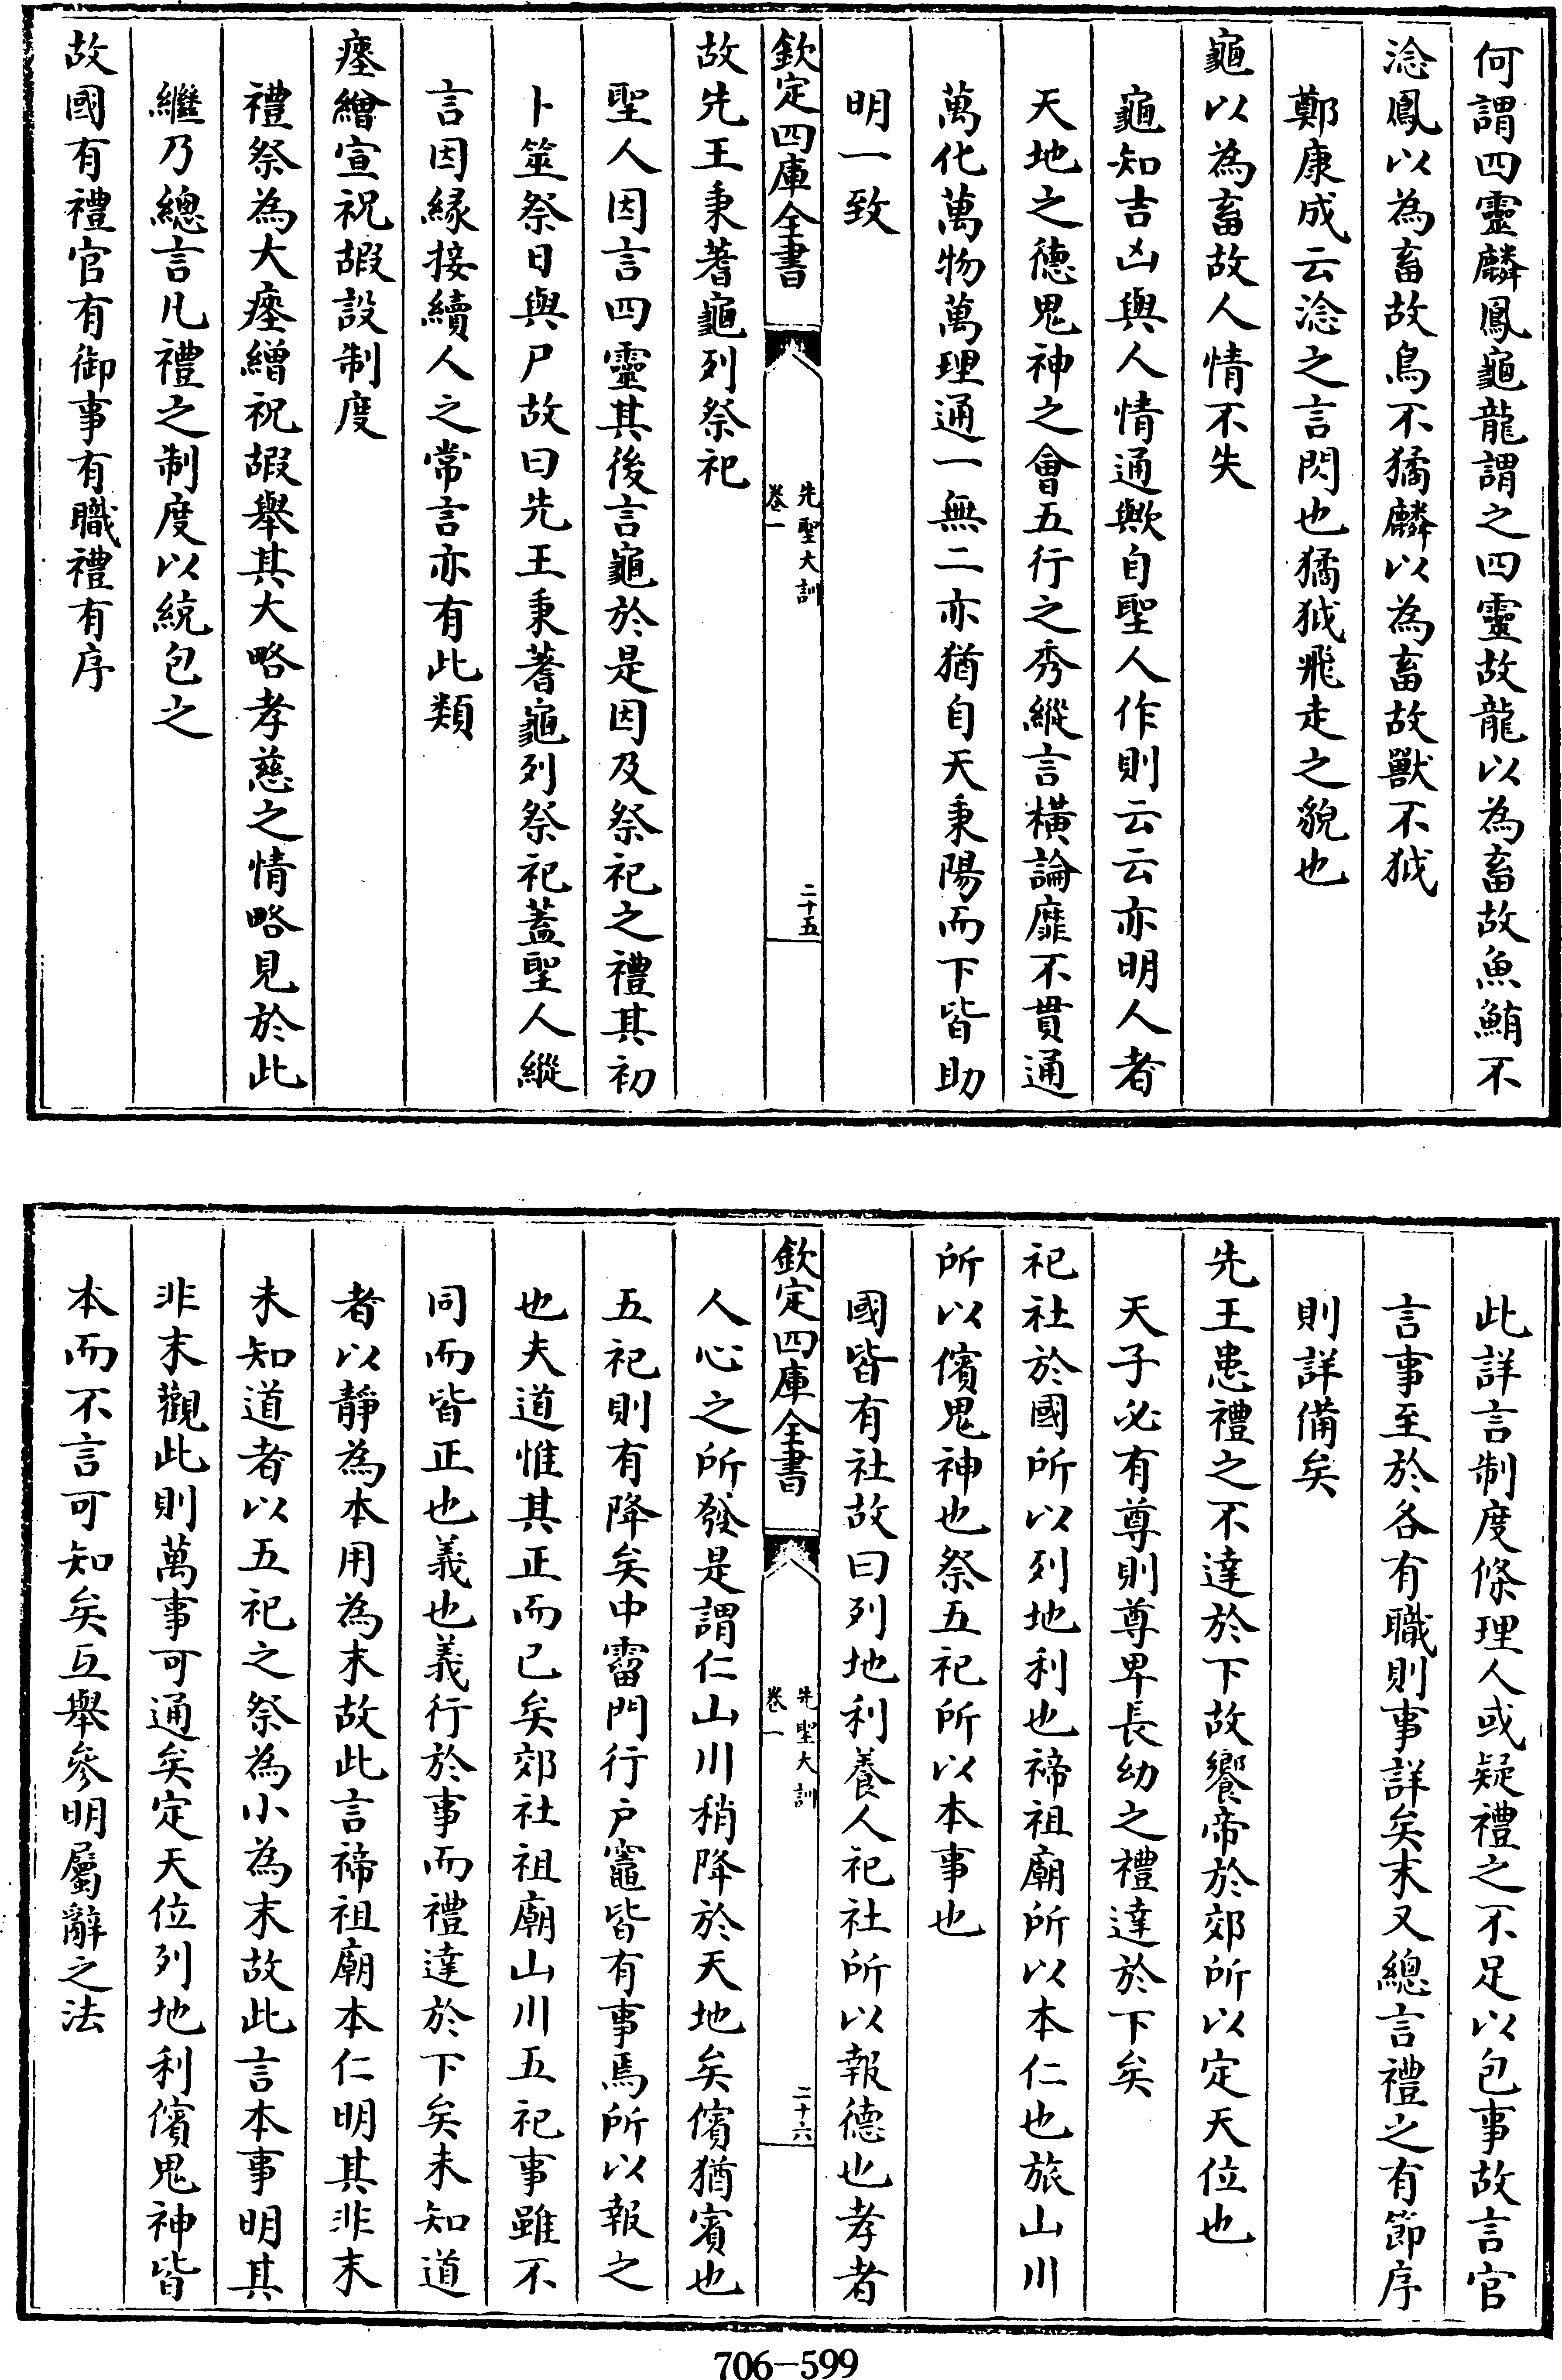 何謂四靈麟鳳龜龍謂之四靈故龍以為畜故魚鮪不
淰鳳以為畜故鳥不獝麟以為畜故獸不狘
鄭康成云淰之言閃也獝狘飛走之貌也
龜以為畜故人情不失
龜知吉凶與人情通歟自聖人作則云云亦明人者
天地之德鬼神之會五行之秀縱言橫論靡不貫通
萬化萬物萬理通一無二亦猶自天秉陽而下皆助
明一致
欽定四庫全書
先聖大訓
卷一
二十五
故先王秉蓍龜列祭祀
聖人因言四靈其後言龜於是因及祭祀之禮其初
卜筮祭日與尸故曰先王秉蓍龜列祭祀蓋聖人縱
言因緣接續人之常言亦有此類
瘞繒宣祝嘏設制度
禮祭為大瘞繒祝嘏舉其大略孝慈之情略見於此
繼乃總言凡禮之制度以統包之
故國有禮官有御事有職禮有序
此詳言制度條理人或疑禮之不足以包事故言官
言事至於各有職則事詳矣末又總言禮之有節序
則詳備矣
先王患禮之不達於下故饗帝於郊所以定天位也
天子必有尊則尊卑長幼之禮達於下矣
祀社於國所以列地利也禘祖廟所以本仁也旅山川
所以儐鬼神也祭五祀所以本事也
國皆有社故曰列地利養人祀社所以報德也孝者
欽定四庫全書
先聖大訓
卷一
二十六
人心之所發是謂仁山川稍降於天地矣儐猶賓也
五祀則有降矣中霤門行戶竈皆有事焉所以報之
也夫道惟其正而已矣郊社祖廟山川五祀事雖不
同而皆正也義也義行於事而禮達於下矣未知道
者以靜為本用為末故此言禘祖廟本仁明其非末
未知道者以五祀之祭為小為末故此言本事明其
非末觀此則萬事可通矣定天位列地利儐鬼神皆
本而不言可知矣互舉參明屬辭之法
706-599